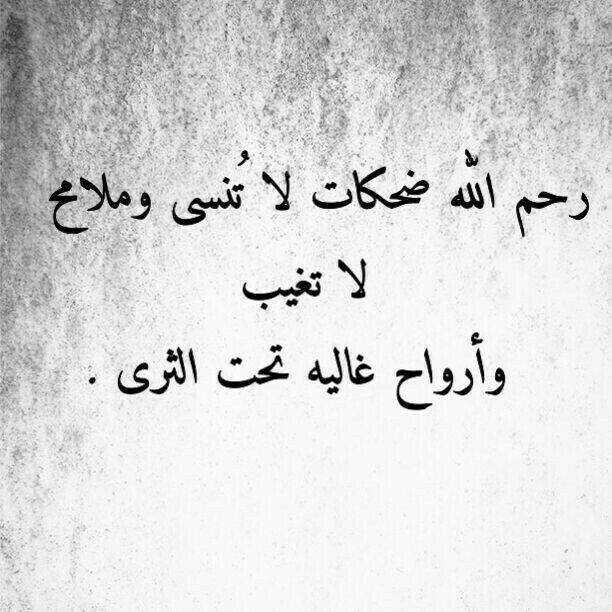 رحم الله ضحكات لا تُنسى وملامح
لا تغيب
وأرواح غاليه تحت الثرى .